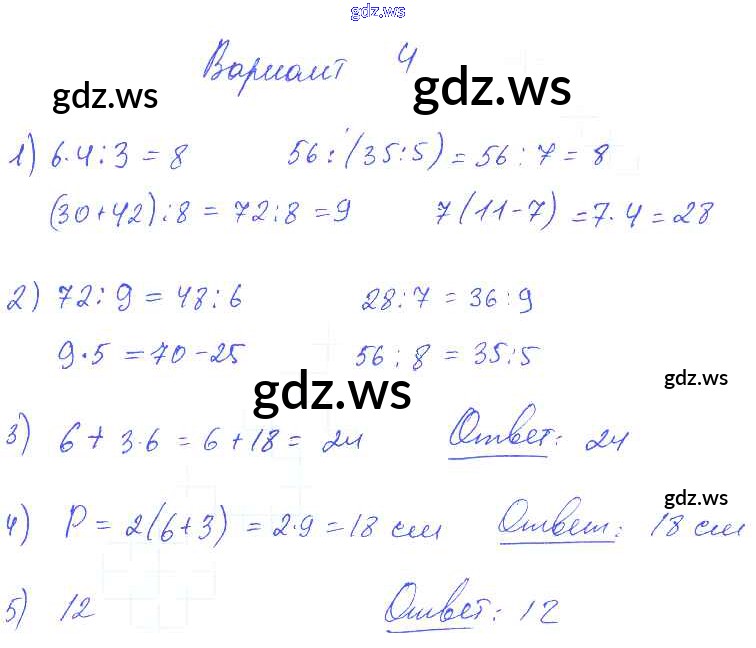 gdz.ws
Вариант 4
gdz.ws gdz.ws
1) 6·4:3 = 8 56:(35:5) = 56:7 = 8
(30+42):8 = 72:8 = 9 7(11-7) = 7·4 = 28
2) 72:9 = 48:6 28:7 = 36:9
9·5 = 70-25 56:8 = 35:5
gdz.ws gdz.ws
3) 6 + 3·6 = 6 + 18 = 24 Ответ: 24
gdz.ws
4) P = 2(6+3) = 2·9 = 18 см Ответ: 18 см
5) 12 Ответ: 12